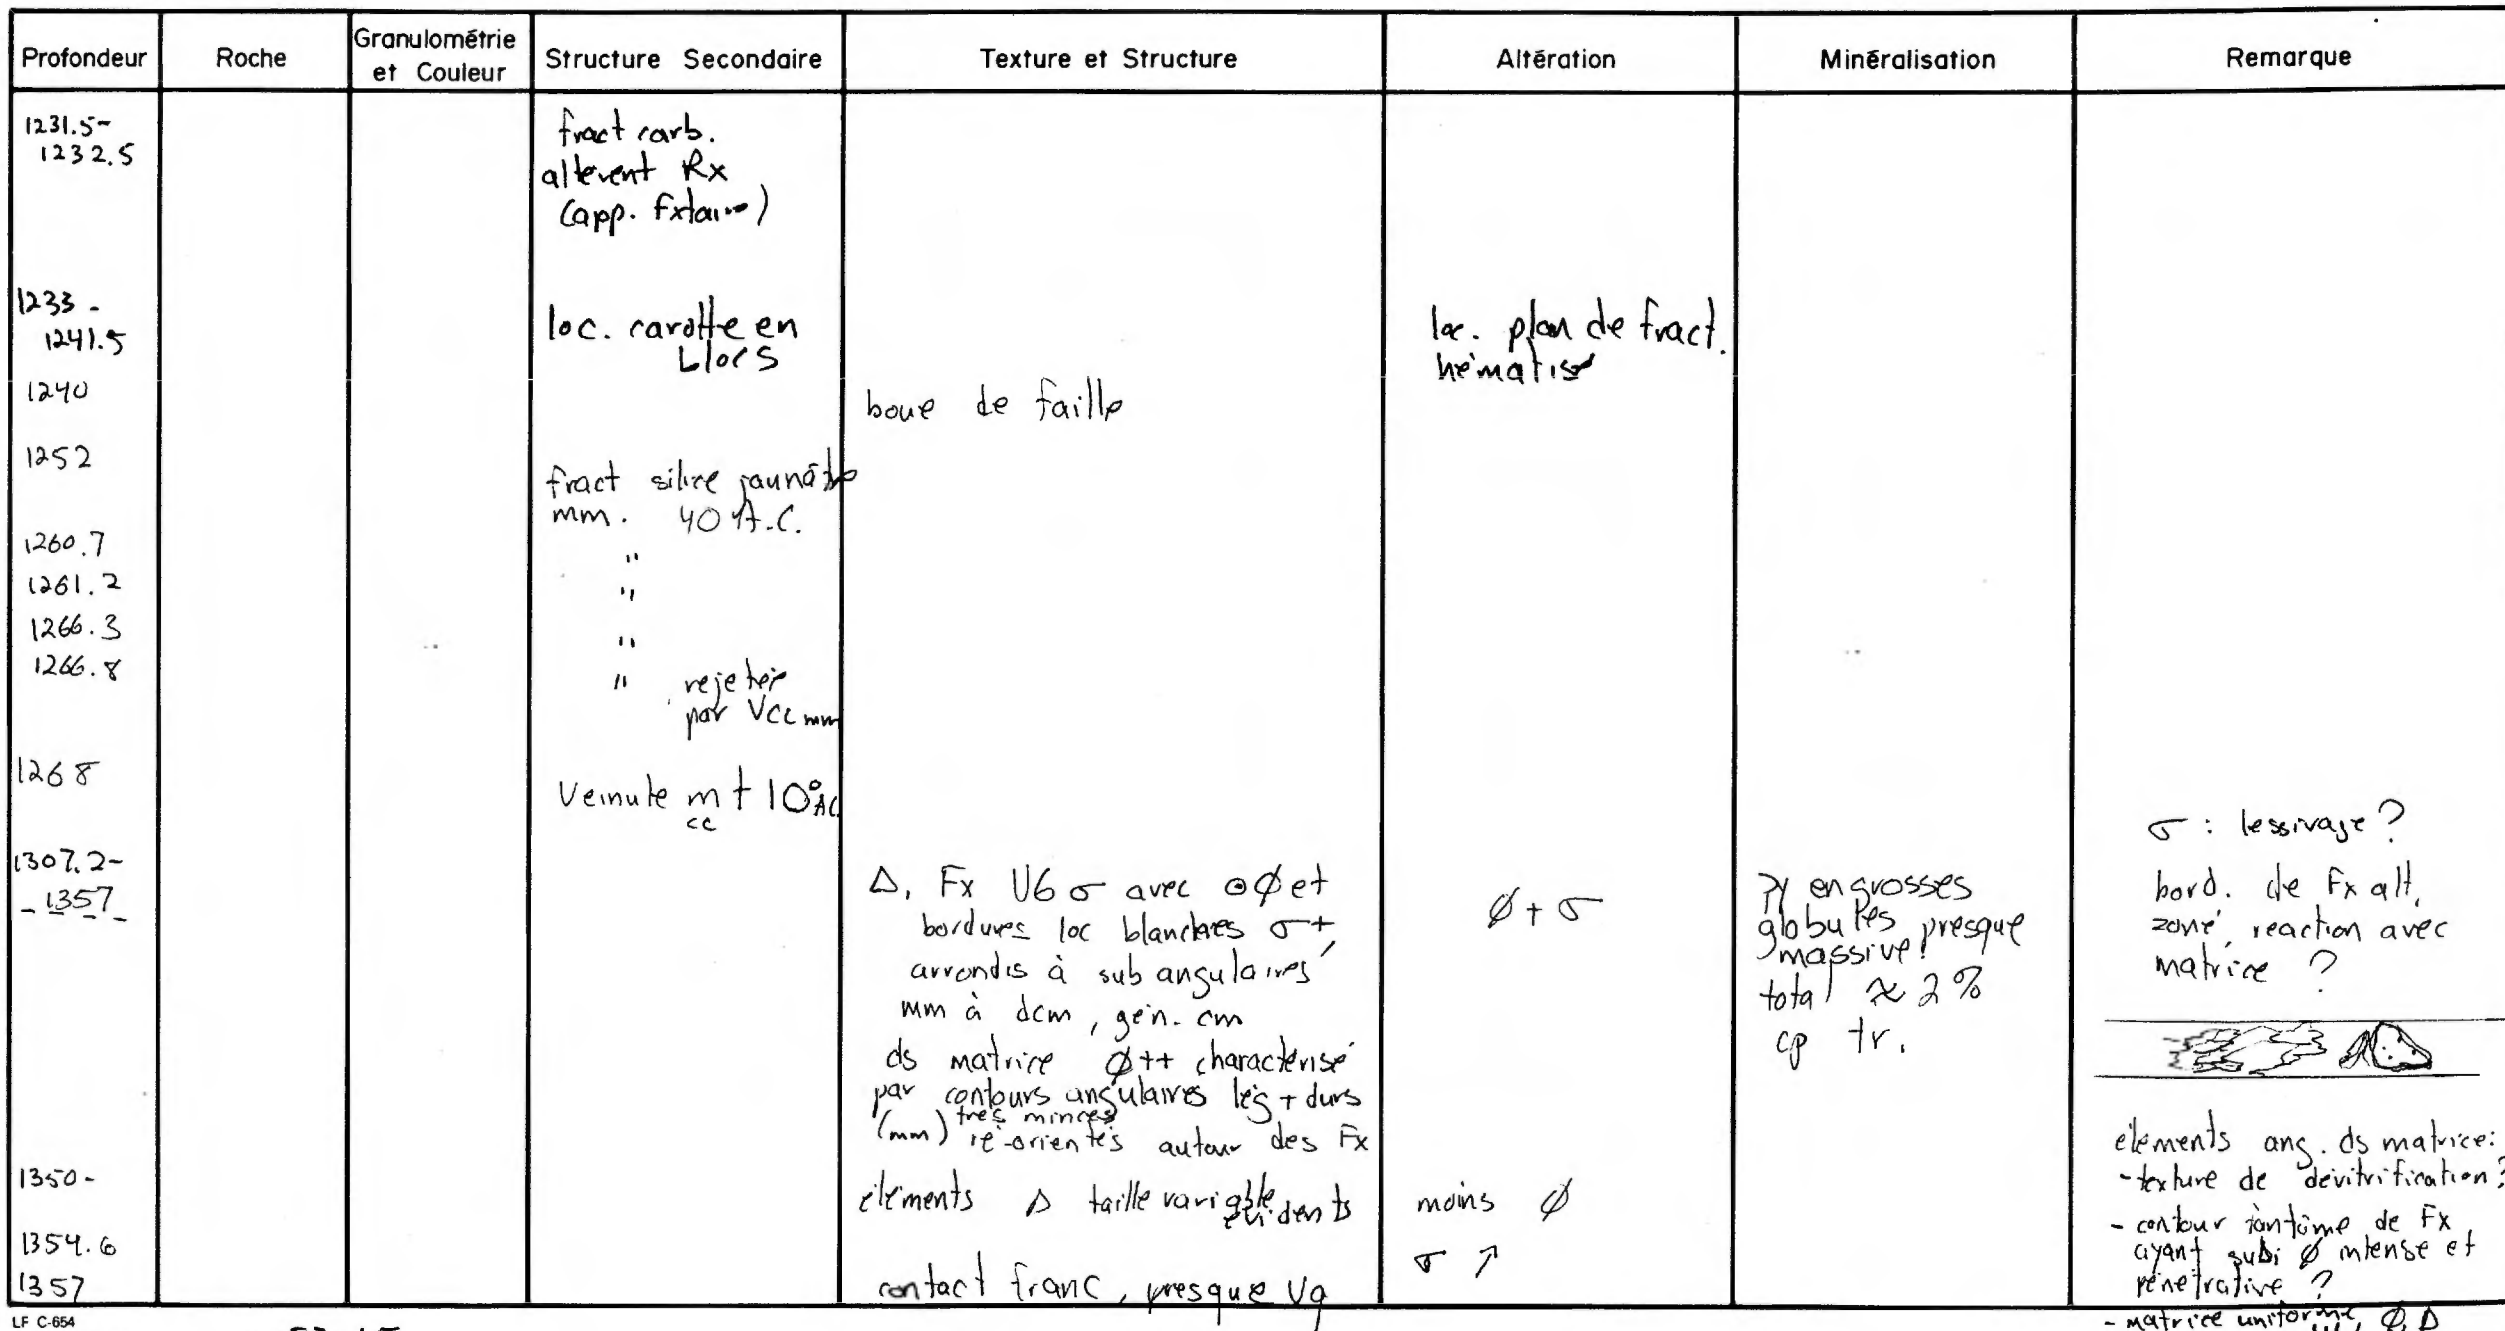 Profondeur Roche Granulométrie et Couleur Structure Secondaire Texture et Structure Altération Minéralisation Remarque
1231.5-
1232.5
fract carb.
altèrent Rx
(app. Fxtaire)
1233 -
1241.5
loc. carotte en
blocs
loc. plan de fract.
hématisé
1240
boue de faille
1252
fract silice jaunâtre
mm. 40 A.C.
1260.7 "
1261.2 "
1266.3 "
1266.8 " rejetée
par Vcc mm
1268
Veinule m t 10° AC
cc
1307.2-
- 1357 -
Δ, Fx V6 σ avec ⊙ Ø et
bordures loc blanches σ+,
arrondis à sub angulaires
mm à dcm, gén. cm
ds matrice Ø++ charactérisé
par contours angulaires lég + durs
(mm) très minces ré-orientés autour des Fx
Ø + σ
py en grosses
globules presque
massive!
total ≈ 2%
cp tr.
σ : lessivage?
bord. de Fx alt,
zoné, reaction avec
matrice ?
élements ang. ds matrice:
- texture de dévitrification?
- contour fantôme de Fx
ayant subi Ø intense et
pénetrative ?
- matrice uniforme, Ø, Δ
1350-
éléments Δ taille variable
évidents
moins Ø
1354.6
σ ↗
1357
contact franc, presque Vg
LF C-654